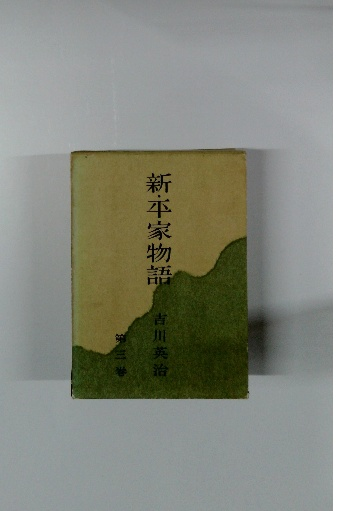 新・平家物語
吉川英治
第三巻